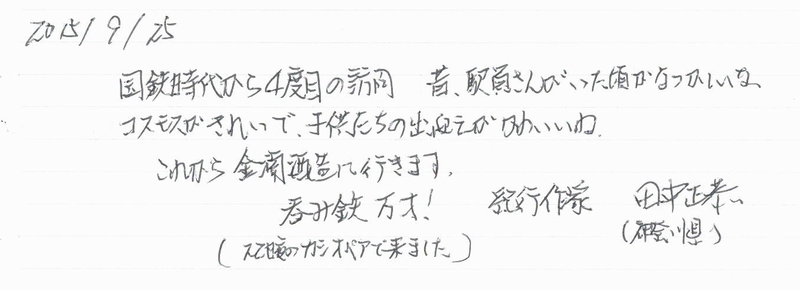 2015/9/25
国鉄時代から4度目の訪問 昔、駅員さんがいった頃がなつかしいな、
コスモスがきれいで、子供たちの出迎えがかわいいね。
これから金蘭酒造に行きます。
呑み鉄 万才! 紀行作家 田中正恭
(スロ暖のカシオペアで来ました) (神奈川県)